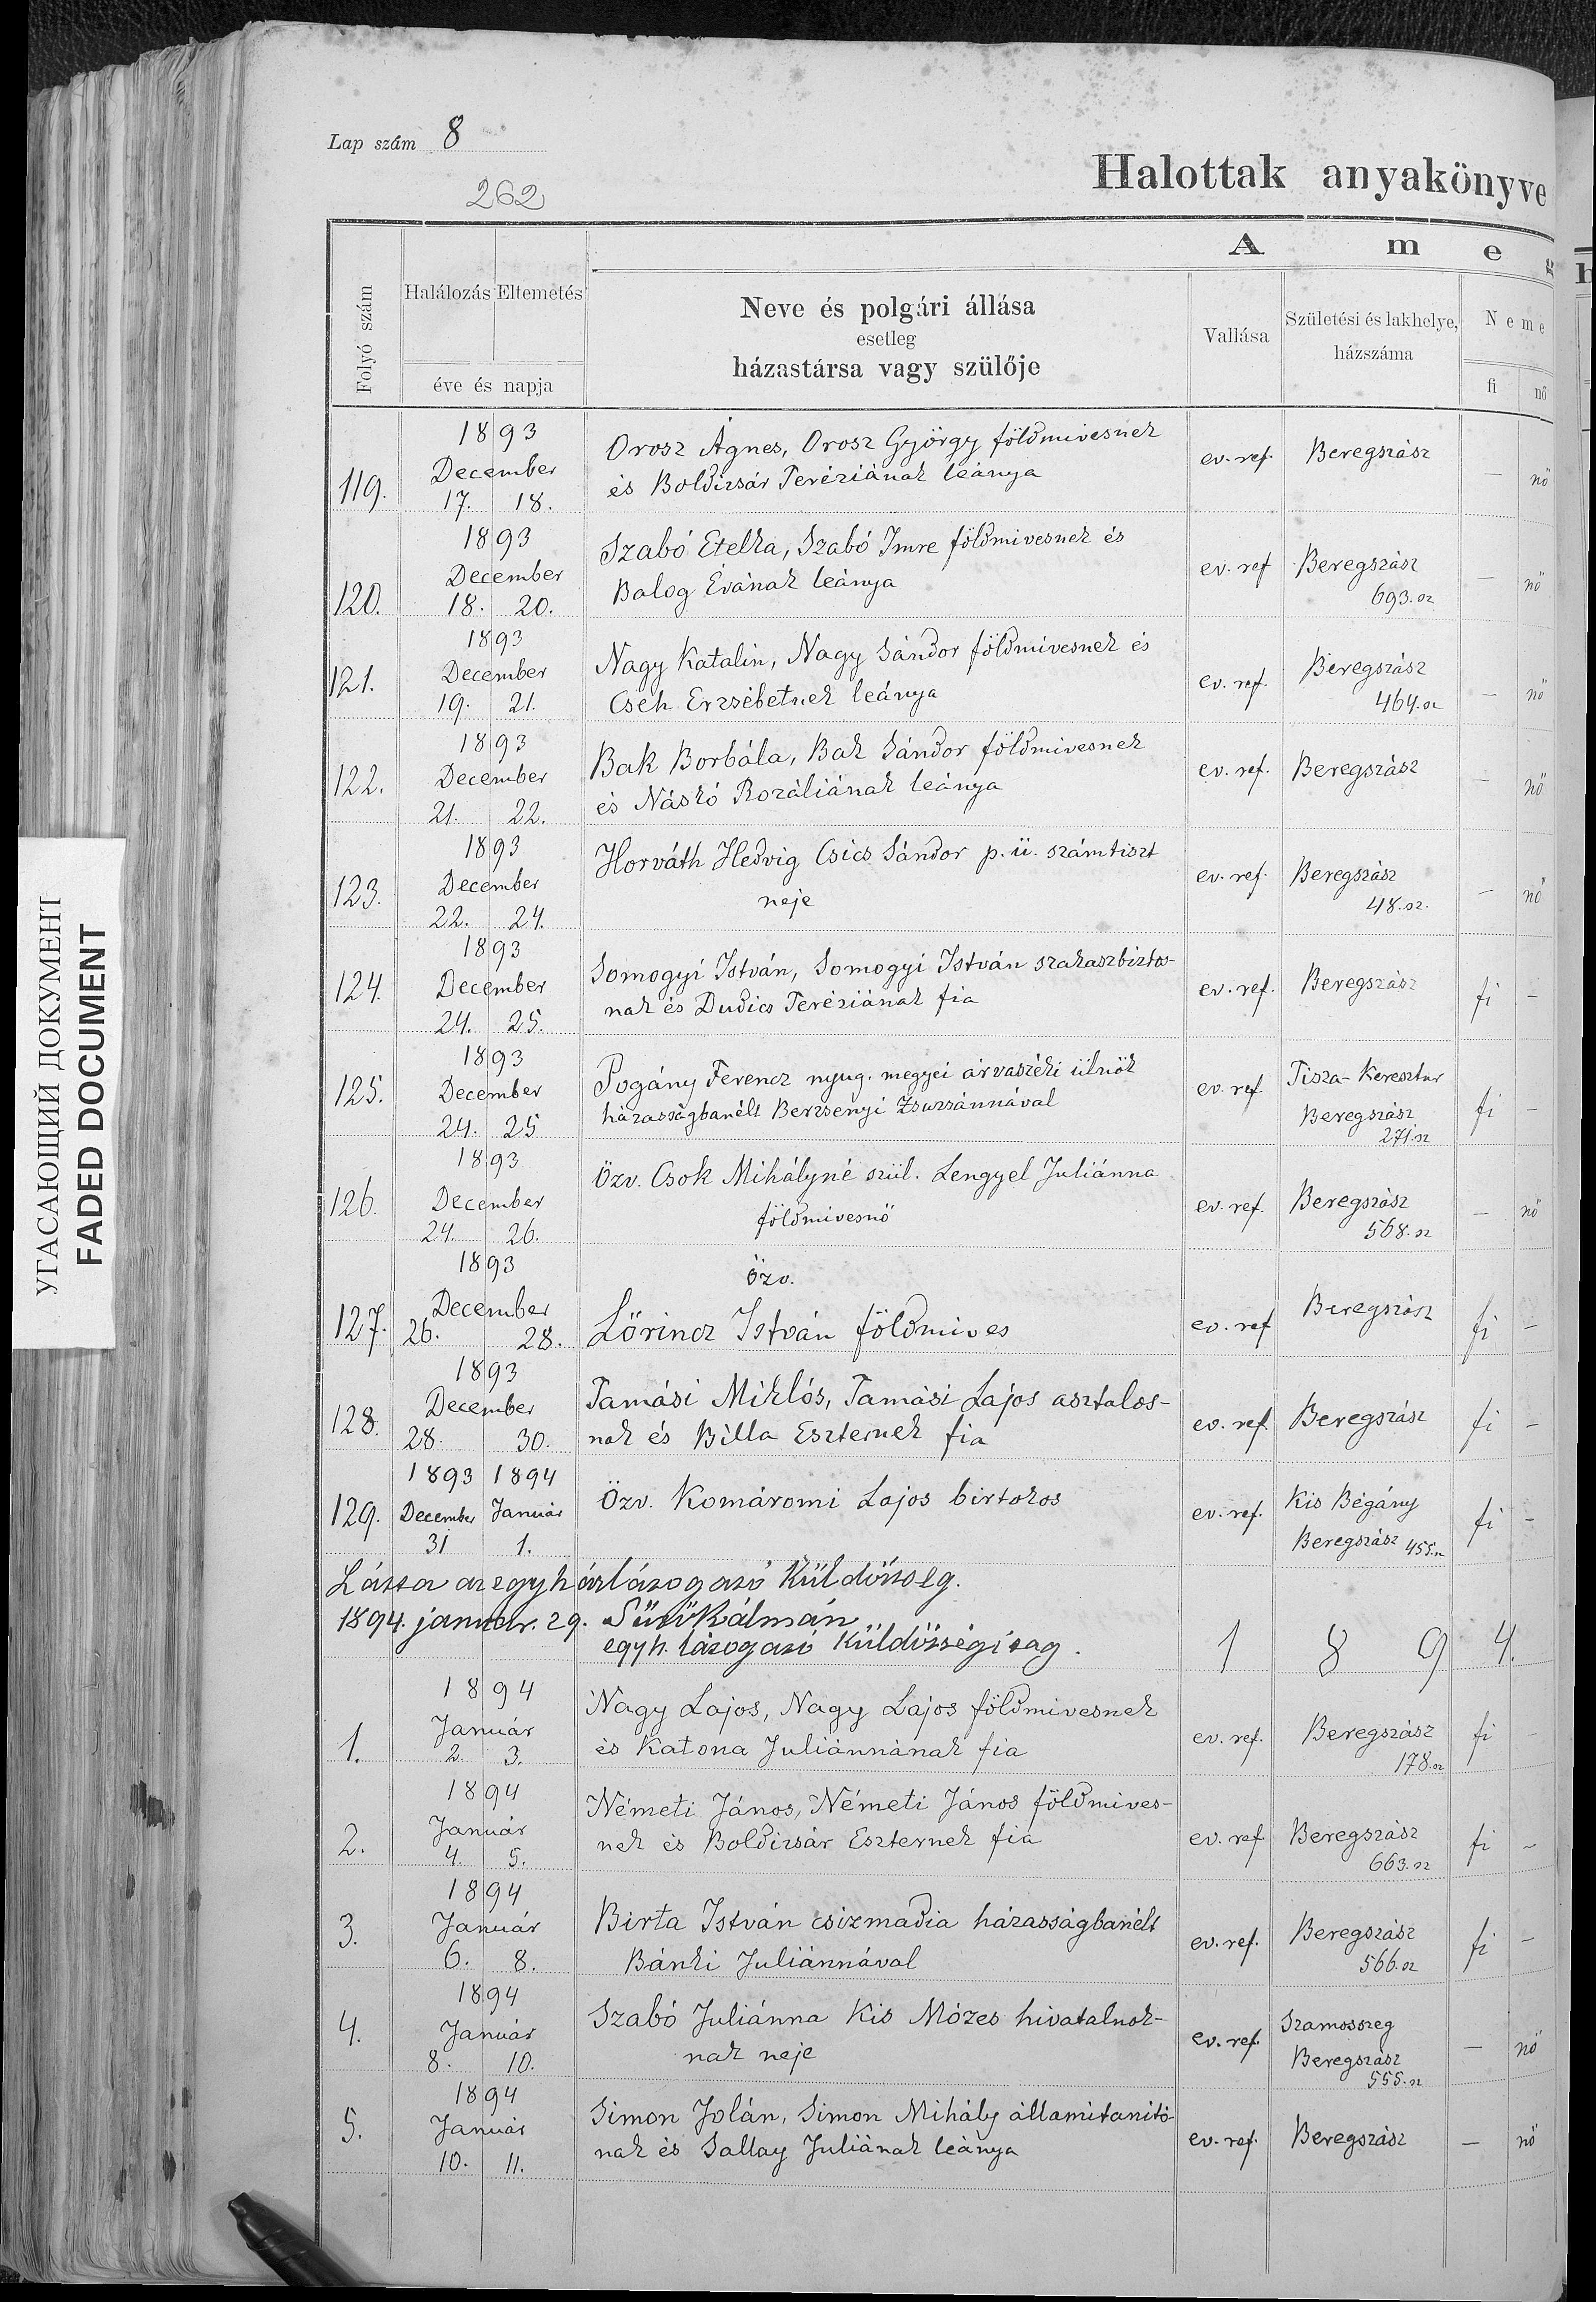 Lap szám 8
262
Halottak anyakönyve
A m e g
h
Folyó szám
Halálozás Eltemetés
éve és napja
Neve és polgári állása
esetleg
házastársa vagy szülője
Vallása
Születési és lakhelye,
házszáma
Neme
fi nő
1893
December
119. 17. 18.
Orosz Ágnes, Orosz György földmivesnek
és Boldizsár Teréziának leánya
ev. ref. Beregszász — nő
1893
December
120. 18. 20.
Szabó Etelka, Szabó Imre földmivesnek és
Balog Évának leánya
ev. ref Beregszász
693. sz — nő
1893
December
121. 19. 21.
Nagy Katalin, Nagy Sándor földmivesnek és
Cseh Erzsébetnek leánya
ev. ref. Beregszász
464. sz — nő
1893
December
122. 21. 22.
Bak Borbála, Bak Sándor földmivesnek
és Náskó Rozáliának leánya
ev. ref. Beregszász — nő
1893
December
123. 22. 24.
Horváth Hedvig Csics Sándor p. ü. számtiszt
neje
ev. ref. Beregszász
48. sz. — nő
1893
December
124. 24. 25.
Somogyi István, Somogyi István szakaszbiztos-
nak és Dudics Teréziának fia
ev. ref. Beregszász fi —
1893
December
125. 24. 25
Pogány Ferencz nyug. megyei árvaszéki ülnök
házasságbanélt Berzsenyi Zsuzsánnával
ev. ref Tisza-Keresztur
Beregszász
271. sz fi —
1893
December
126. 24. 26.
Özv. Csok Mihályné szül. Lengyel Juliánna
földmivesnő
ev. ref. Beregszász
568. sz — nő
1893
December
127. 26. 28.
özv.
Lőrincz István földmives
ev. ref Beregszász fi —
1893
December
128. 28. 30.
Tamási Miklós, Tamási Lajos asztalos-
nak és Billa Eszternek fia
ev. ref. Beregszász fi —
1893 1894
129. December Január
31 1.
Özv. Komáromi Lajos birtokos
ev. ref. Kis Bégány
Beregszász 455. sz fi —
Látta az egyházlátogató Küldöttség.
1894. január. 29. Kálmán
egyh. látogató Küldöttségi tag.
1 8 9 4.
1894
Január
1. 2. 3.
Nagy Lajos, Nagy Lajos földmivesnek
és Katona Juliánnának fia
ev. ref. Beregszász
178. sz fi —
1894
Január
2. 4. 5.
Németi János, Németi János földmives-
nek és Boldizsár Eszternek fia
ev. ref Beregszász
663. sz fi —
1894
Január
3. 6. 8.
Birta István csizmadia házasságbanélt
Bánki Juliánnával
ev. ref. Beregszász
566. sz fi —
1894
Január
4. 8. 10.
Szabó Juliánna Kis Mózes hivatalnok-
nak neje
ev. ref. Szamosszeg
Beregszász
555. sz — nő
1894
Január
5. 10. 11.
Simon Jolán, Simon Mihály államitanitó-
nak és Sallay Juliának leánya
ev. ref. Beregszász — nő
УГАСАЮЩИЙ ДОКУМЕНТ
FADED DOCUMENT